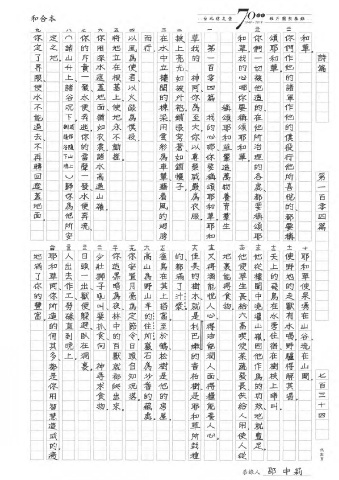 和合本
詩篇
第一百零四篇
七百三十四
你們作他的諸軍作他的僕役行他所喜悅的都要稱
頌耶和華
你們一切被他造的在他所治理的各處都要稱頌耶
和華我的心哪你要稱頌耶和華
稱頌耶和華豐養萬物
第一百零四篇
我的心哪你要稱頌耶和華耶和
華我的神阿你為至大你以尊榮威嚴為衣服
披上亮光如披外袍鋪張穹蒼如鋪幔子
在水中立樓閣的棟梁用雲彩為車輦藉著風的翅膀
而行
以風為使者以火焰為僕役
將地立在根基上使地永不動搖
你用深水遮蓋地面猶如衣裳諸水高過山嶺
你的斥責一發水便奔逃你的雷聲一發水便奔流
歸你為他所安
定之地
你定了界限使水不能過去不再轉回遮蓋地面
耶和華使泉源湧在山谷流在山間
使野地的走獸有水喝野驢得解其渴
天上的飛鳥在水旁住宿在樹枝上啼叫
他從樓閣中澆灌山嶺因他作為的功效地就豐足
他使草生長給六畜喫使菜蔬發長供給人用使人從
地裏能得食物
又得酒能悅人心得油能潤人面得糧能養人心
佳美的樹木就是利巴嫩的香柏樹是耶和華所栽種
的都滿了汁漿
雀鳥在其上搭窩至於鶴松樹是他的房屋
高山為野山羊的住所巖石為沙番的藏處
你安置月亮為定節令日頭自知沉落
你造黑暗為夜林中的百獸就都爬出來
少壯獅子吼叫要抓食向神尋求食物
日頭一出獸便躲避臥在洞裏
人出去作工勞碌直到晚上
耶和華阿你所造的何其多都是你用智慧造成的遍
地滿了你的豐富